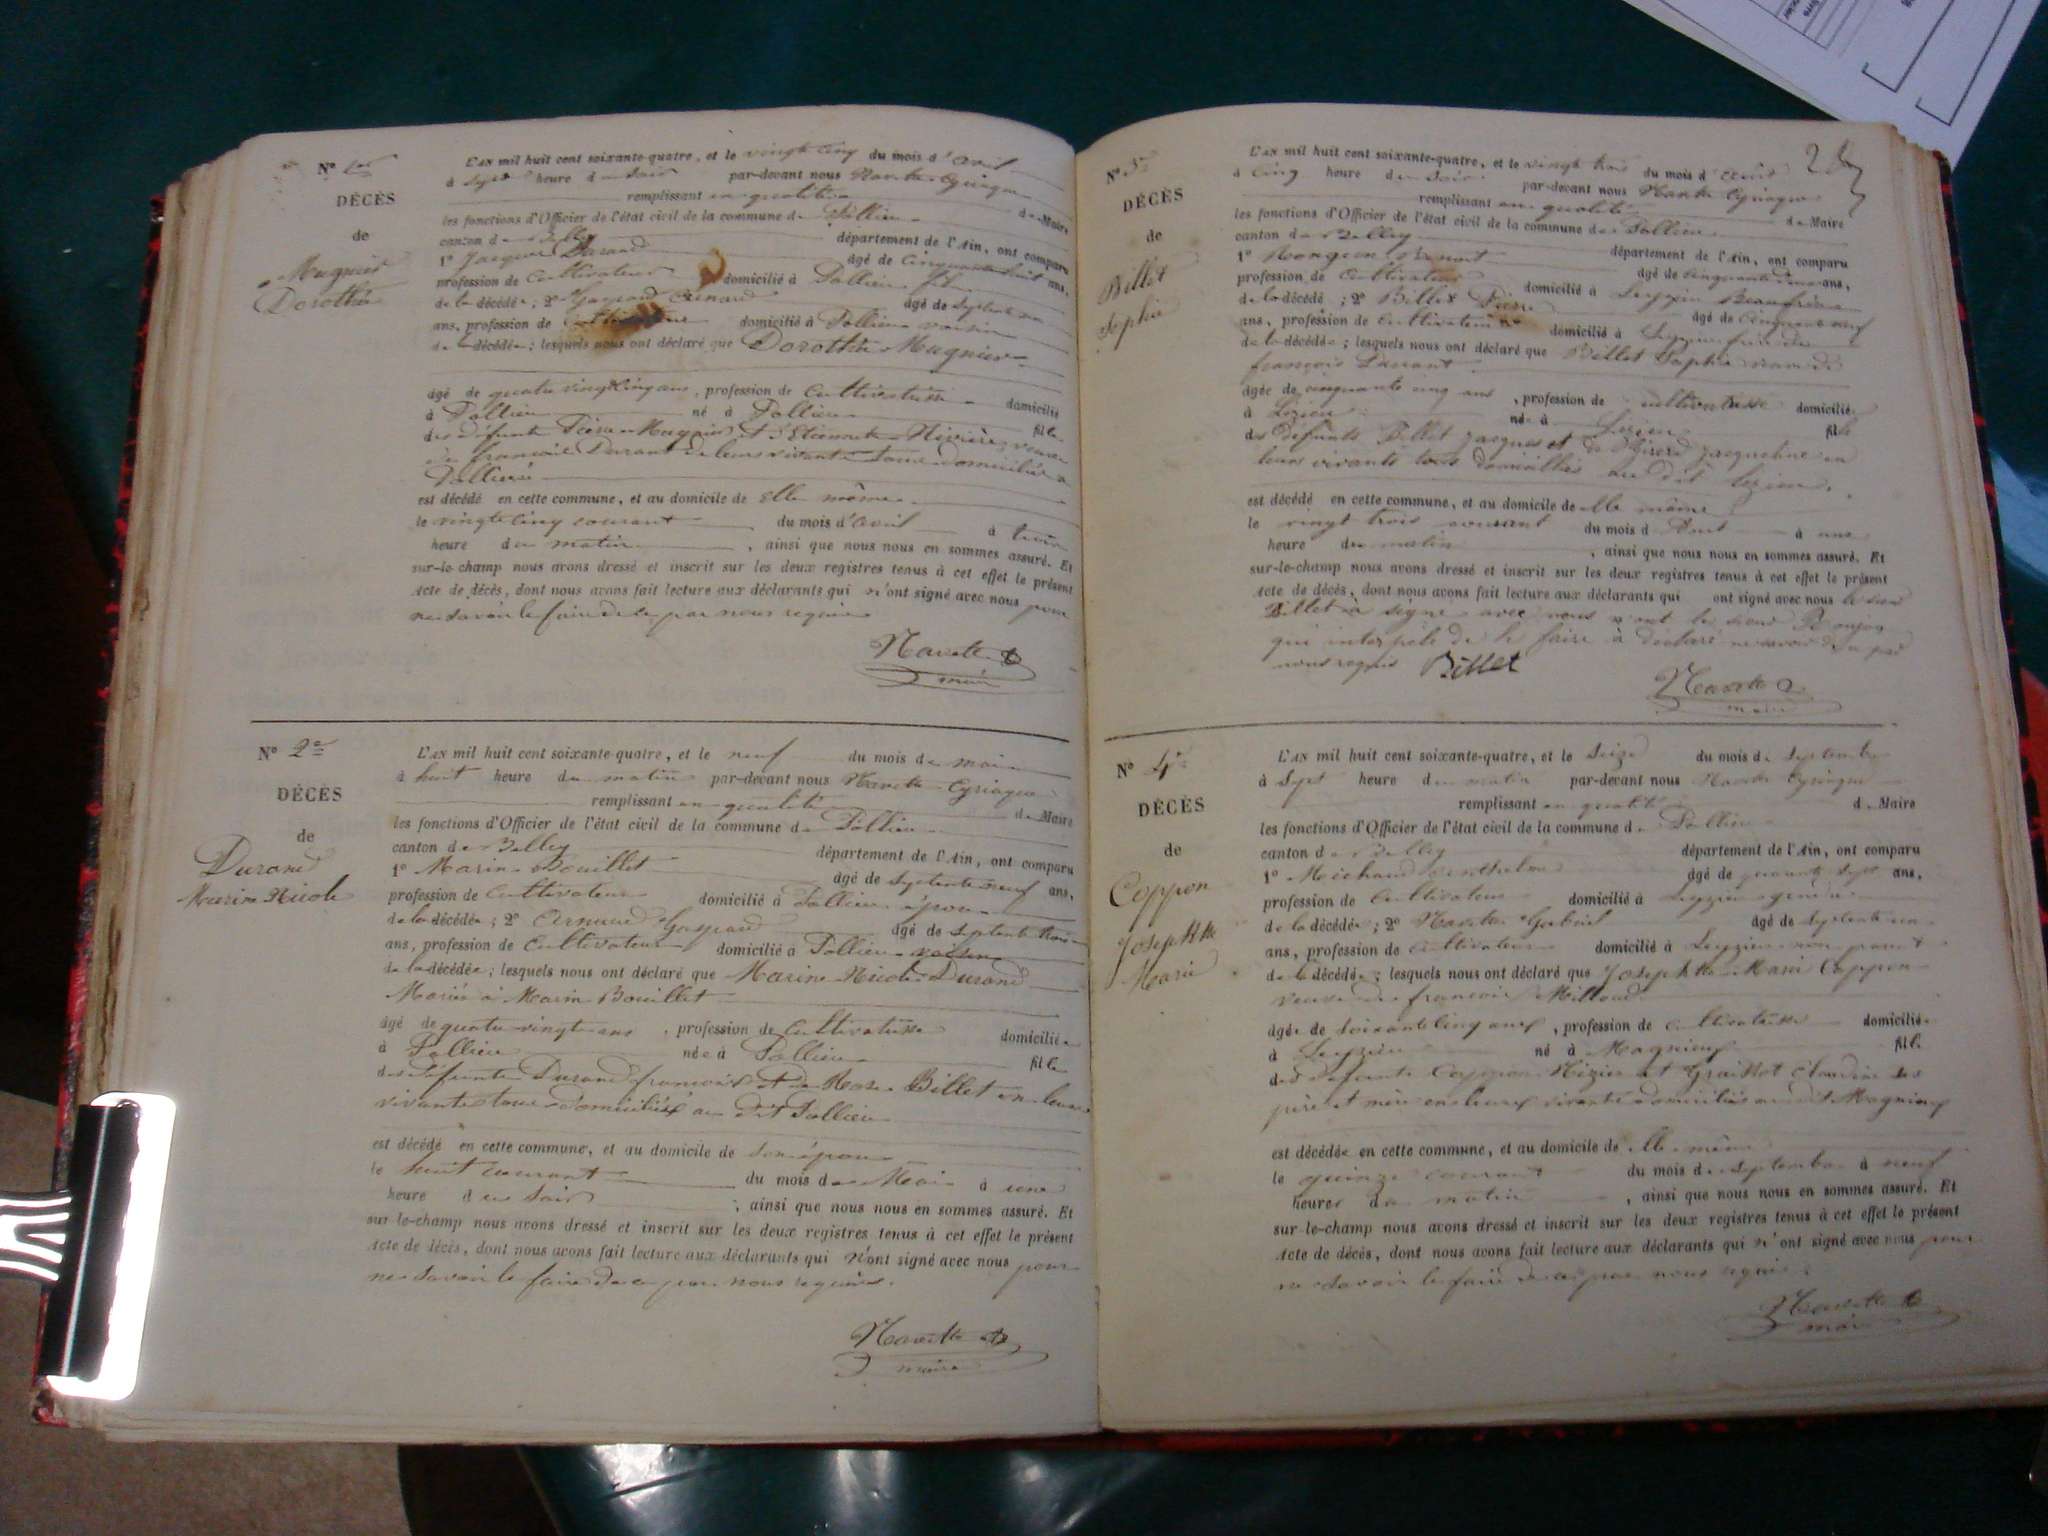 N° 1er
DÉCÈS
de
Magnin
Dorothée
L'AN mil huit cent soixante-quatre, et le vingt cinq du mois d'avril
à sept heure du soir par-devant nous Navette Cyriaque
remplissant en qualité de Maire
les fonctions d'Officier de l'état civil de la commune de Pollieu
canton de Belley département de l'Ain, ont comparu
1° Jacques Durand âgé de cinquante huit ans,
profession de Cultivateur domicilié à Pollieu fils
de la décédée; 2° Gaspard Arnaud âgé de septente
ans, profession de domicilié à Pollieu voisin
de la décédée; lesquels nous ont déclaré que Dorothée Magnin
âgé de quatre vingt cinq ans, profession de Cultivatrice domicilié
à Pollieu né à Pollieu fille
des défunts Pierre Magnin et d'Etiennette veuve
de françois Durand de leurs vivants tous domiciliés à
Pollieu
est décédé en cette commune, et au domicile de elle même
le vingt cinq courant du mois d'avril à trois
heure du matin, ainsi que nous nous en sommes assuré. Et
sur-le-champ nous avons dressé et inscrit sur les deux registres tenus à cet effet le présent
Acte de décès, dont nous avons fait lecture aux déclarants qui n'ont signé avec nous pour
ne savoir le faire de ce par nous requis
Navette
maire
N° 2e
DÉCÈS
de
Durand
Marine Nicole
L'AN mil huit cent soixante-quatre, et le neuf du mois de mai
à huit heure du matin par-devant nous Navette Cyriaque
remplissant en qualité de Maire
les fonctions d'Officier de l'état civil de la commune de Pollieu
canton de Belley département de l'Ain, ont comparu
1° Marin Bouillet âgé de septente neuf ans,
profession de Cultivateur domicilié à Pollieu époux
de la décédée; 2° Arnaud Gaspard âgé de septente trois
ans, profession de Cultivateur domicilié à Pollieu voisin
de la décédée; lesquels nous ont déclaré que Marine Nicole Durand
Mariée à Marin Bouillet
âgé de quatre vingt ans, profession de Cultivatrice domiciliée
à Pollieu née à Pollieu fille
des défunts Durand françois et de Rose Billet en leurs
vivants tous domiciliés au dit Pollieu
est décédé en cette commune, et au domicile de son époux
le huit courant du mois de Mai à une
heure du soir, ainsi que nous nous en sommes assuré. Et
sur-le-champ nous avons dressé et inscrit sur les deux registres tenus à cet effet le présent
Acte de décès, dont nous avons fait lecture aux déclarants qui n'ont signé avec nous pour
ne savoir le faire de ce par nous requis.
Navette
maire
N° 3e
DÉCÈS
de
Billet
Sophie
L'AN mil huit cent soixante-quatre, et le vingt trois du mois d'
à cinq heure du soir par-devant nous Navette Cyriaque
remplissant en qualité de Maire
les fonctions d'Officier de l'état civil de la commune de Pollieu
canton de Belley département de l'Ain, ont comparu
1° âgé de cinquante ans,
profession de Cultivateur domicilié à Leyzieu Beaufrère
de la décédé; 2° Billet Pierre âgé de cinquante neuf
ans, profession de Cultivateur domicilié à Leyzieu frère
de la décédée; lesquels nous ont déclaré que Billet Sophie
françois
âgée de cinquante cinq ans, profession de cultivatrice domicilié
à Lezieu née à Lezieu fille
des défunts Billet Jacques et de Jacqueline en
leurs vivants tous domiciliés au dit lezieu.
est décédé en cette commune, et au domicile de elle même
le vingt trois courant du mois d'Aout à une
heure du matin, ainsi que nous nous en sommes assuré. Et
sur-le-champ nous avons dressé et inscrit sur les deux registres tenus à cet effet le présent
Acte de décès, dont nous avons fait lecture aux déclarants qui ont signé avec nous le sieur
Billet à signé avec nous n'ont le sieur
qui interpélé de le faire à déclaré ne savoir de ce par
nous requis Billet
Navette
maire
N° 4e
DÉCÈS
de
Coppon
Josephtte
Marie
L'AN mil huit cent soixante-quatre, et le seize du mois de septembre
à sept heure du matin par-devant nous Navette Cyriaque
remplissant en qualité de Maire
les fonctions d'Officier de l'état civil de la commune de Pollieu
canton de Belley département de l'Ain, ont comparu
1° Michaud Anthelme âgé de quarante sept ans,
profession de Cultivateur domicilié à Leyzieu gendre
de la décédée; 2° Navette Gabriel âgé de septente un
ans, profession de Cultivateur domicilié à Leyzieu non parent
de la décédée; lesquels nous ont déclaré que Josephtte Marie Coppon
veuve de françois Millaud
âgée de soixante cinq ans, profession de cultivatrice domiciliée
à Leyzieu né à Magnieu fille
des défunts Coppon Nizier et Graillot Claudine ses
père et mère en leurs vivants domiciliés au dit Magnieu
est décédée en cette commune, et au domicile de elle même
le quinze courant du mois de septembre à neuf
heures du matin, ainsi que nous nous en sommes assuré. Et
sur-le-champ nous avons dressé et inscrit sur les deux registres tenus à cet effet le présent
Acte de décès, dont nous avons fait lecture aux déclarants qui n'ont signé avec nous pour
ne savoir le faire de ce par nous requis.
Navette
maire